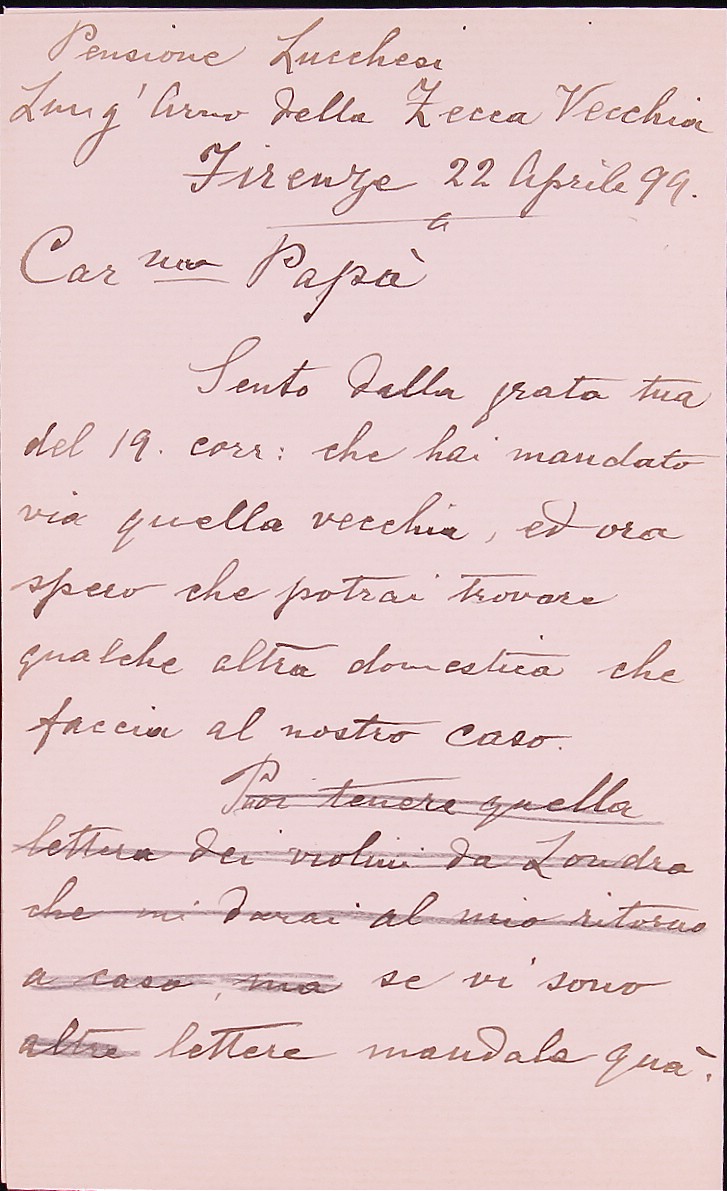 Pensione Lucchesi
Lung'Arno della Zecca Vecchia
Firenze 22 Aprile 99.
Car mo Papà
Sento dalla grata tua
del 19. corr: che hai mandato
via quella vecchia, ed ora
spero che potrai trovare
qualche altra domestica che
faccia al nostro caso.
Puoi tenere quella
lettera dei violini da Londra
che mi darai al mio ritorno
a casa, ma se vi sono
altre lettere mandale quà.